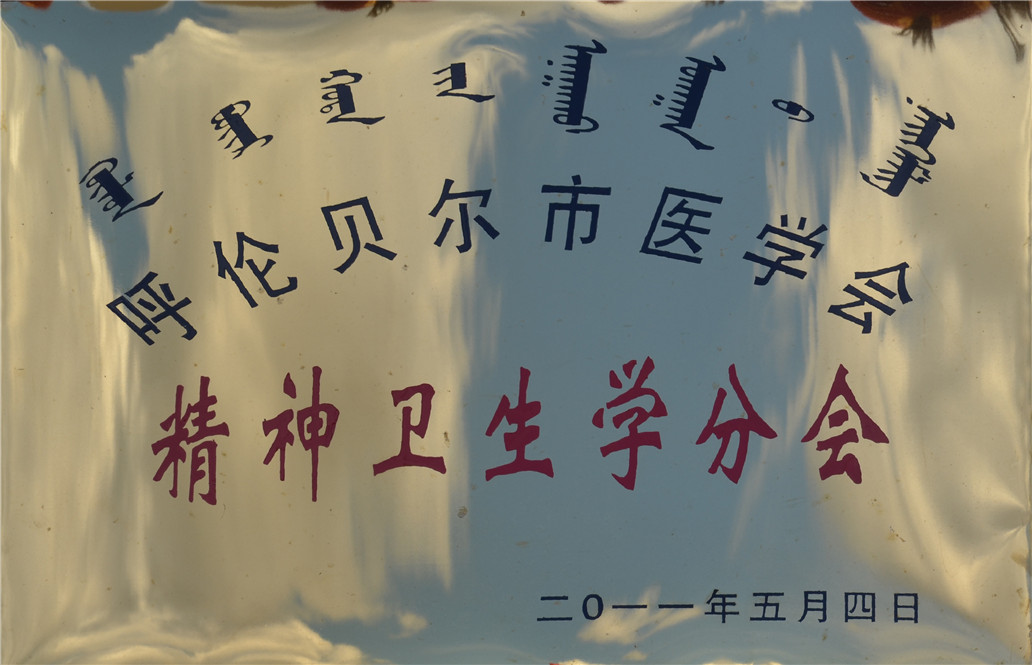 呼伦贝尔市医学会
精神卫生学分会
二0一一年五月四日